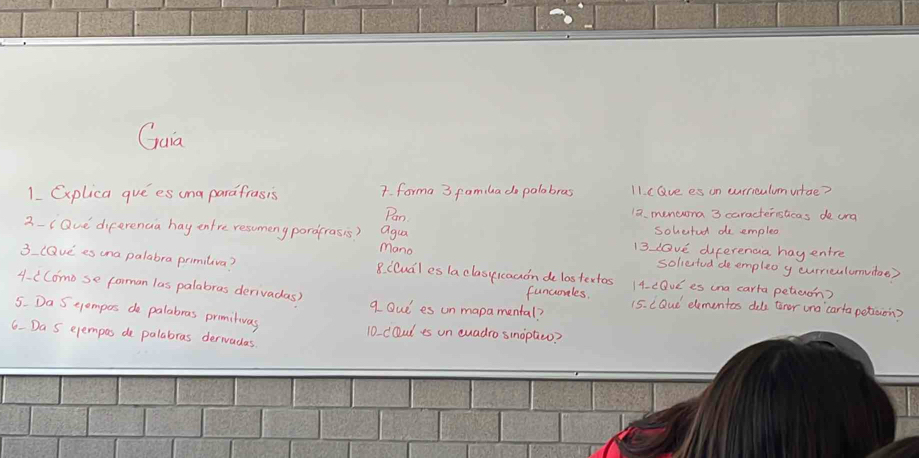 Guía
1- Explica qué es una paráfrasis
2- ¿Qué diferencia hay entre resumen y paráfrasis?
3- ¿Qué es una palabra primitiva?
4- ¿Cómo se forman las palabras derivadas?
5- Da 5 ejempos de palabras primitivas
6- Da 5 ejempos de palabras derivadas.
7. forma 3 familia de palabras
Pan
agua
Mano
8. ¿Cuál es la clasificación de los textos
funcionales.
9. Qué es un mapa mental?
10- ¿Qué es un cuadro sinóptico?
11. ¿Que es un curriculum vitae?
12. menciona 3 caracteristicas de una
Solicitud de empleo
13- ¿Qué diferencia hay entre
Solicitud de empleo y curriculumvitae?
14- ¿Qué es una carta petición?
15. ¿Qué elementos debe tener una carta petición?